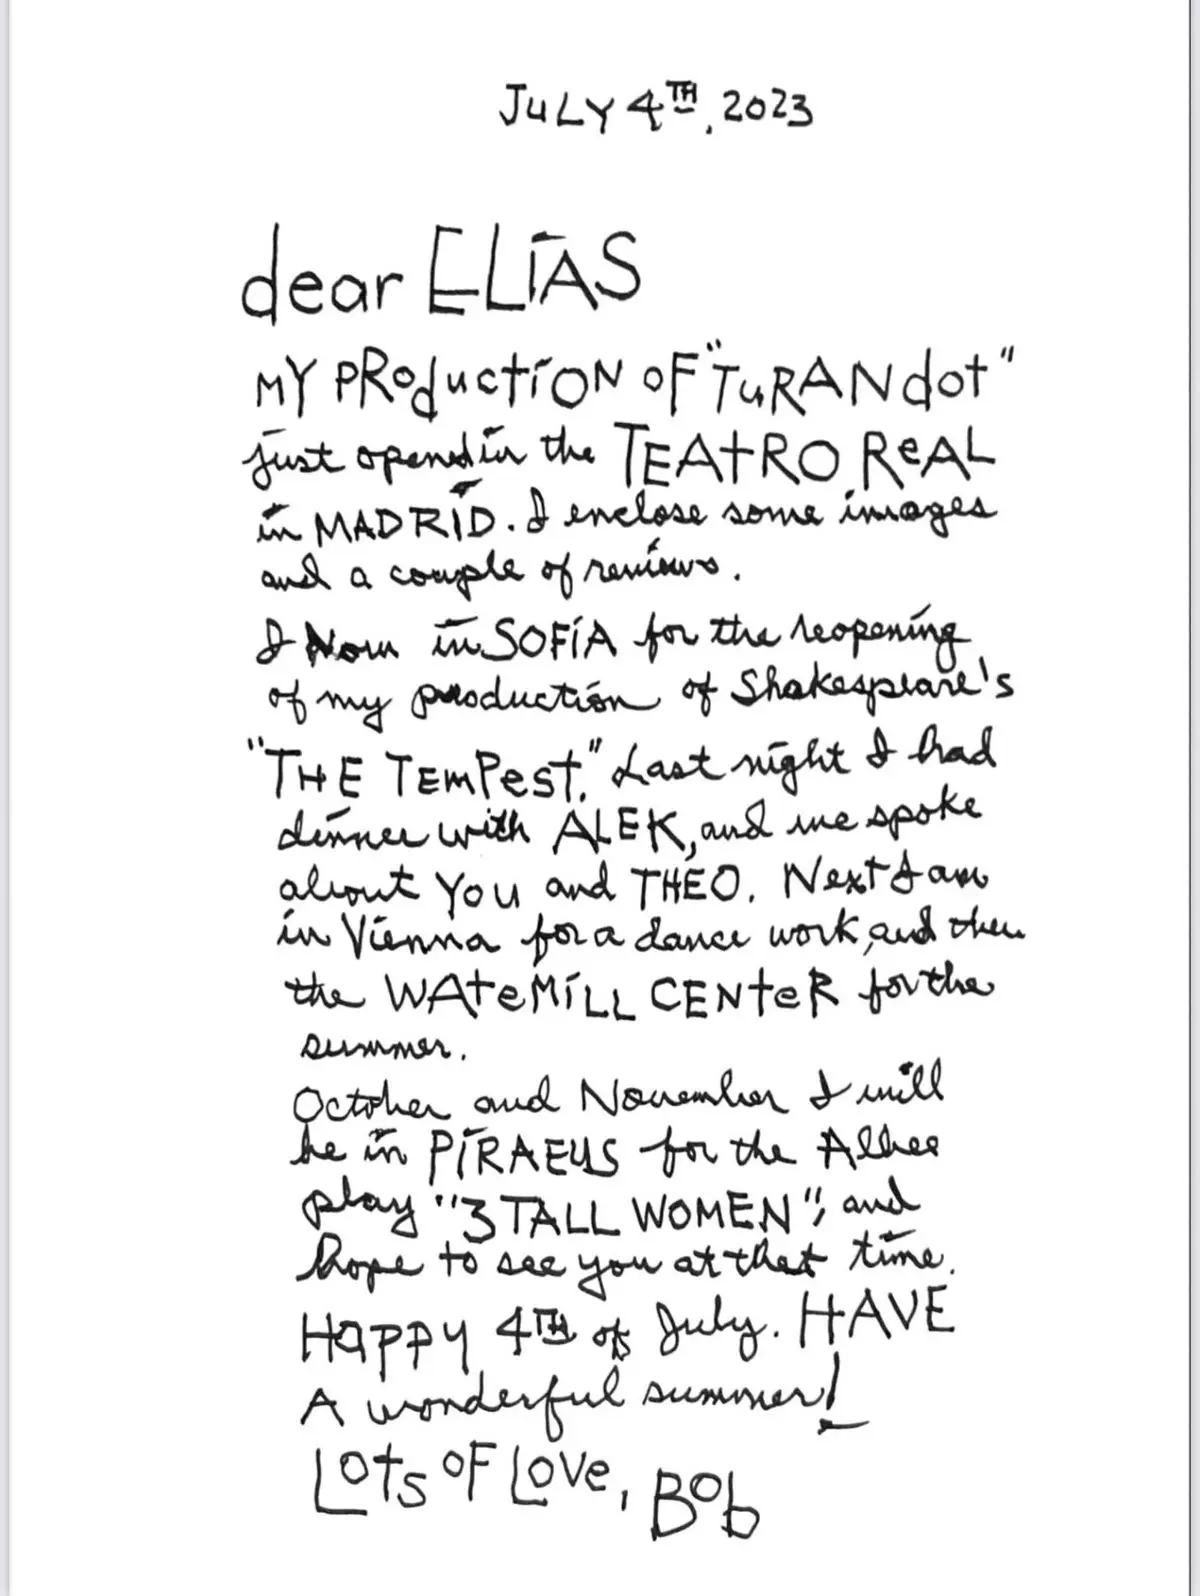 JULY 4TH, 2023
dear ELIAS
MY PRoductION OF "TuRANdot"
just opened in the TEAtRO ReAL
in MADRID. I enclose some images
and a couple of reviews.
I Now in SOFIA for the reopening
of my production of Shakespeare's
"THE TEmPest." Last night I had
dinner with ALEK, and we spoke
about YOU and THEO. Next I am
in Vienna for a dance work, and then
the WAteMILL CENteR for the
summer.
October and November I will
be in PIRAEUS for the Albee
play "3 TALL WOMEN", and
hope to see you at that time.
HAPPY 4TH of July. HAVE
A wonderful summer!
LOts OF LOVe, BOb